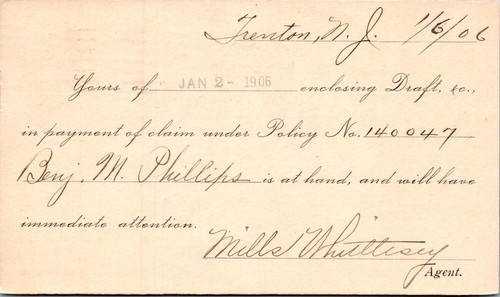 Trenton, N. J. 1/6/06
Yours of JAN 2 - 1906 enclosing Draft, &c.,
in payment of claim under Policy No. 140047
Benj. M. Phillips is at hand, and will have
immediate attention.
Mills Whittlesey
Agent.